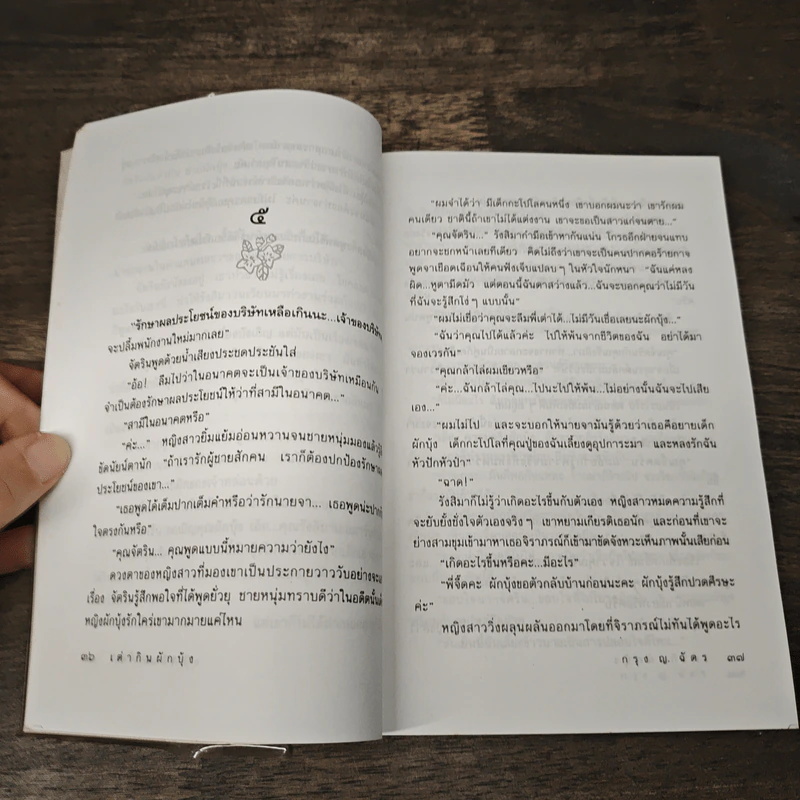 ๕
"รักษาผลประโยชน์ของบริษัทเหลือเกินนะ...เจ้าของบริษัท
จะปลื้มพนักงานใหม่มากเลย"
จัตรินพูดด้วยน้ำเสียงประชดประชันใส่
"อ้อ! ลืมไปว่าในอนาคตจะเป็นเจ้าของบริษัทเหมือนกัน
จำเป็นต้องรักษาผลประโยชน์ให้ว่าที่สามีในอนาคต..."
"สามีในอนาคตหรือ"
"ค่ะ..." หญิงสาวยิ้มแย้มอ่อนหวานจนชายหนุ่มมองแล้วรู้สึก
ขัดนัยน์ตานัก "ถ้าเรารักผู้ชายสักคน เราก็ต้องปกป้องรักษาผล
ประโยชน์ของเขา..."
"เธอพูดได้เต็มปากเต็มคำหรือว่ารักนายจา... เธอพูดน่ะปากกับ
ใจตรงกันหรือ"
"คุณจัตริน... คุณพูดแบบนี้หมายความว่ายังไง"
ดวงตาของหญิงสาวที่มองเขาเป็นประกายวาววับอย่างจะเอา
เรื่อง จัตรินรู้สึกพอใจที่ได้พูดยั่วยุ ชายหนุ่มทราบดีว่าในอดีตนั้น
หญิงผักบุ้งรักใคร่เขามากมายแค่ไหน
๓๖ เต่ากินผักบุ้ง
"ผมจำได้ว่า มีเด็กกะโปโลคนหนึ่ง เขาบอกผมนะว่า เขารักผม
คนเดียว ชาตินี้ถ้าเขาไม่ได้แต่งงาน เขาจะขอเป็นสาวแก่จนตาย..."
"คุณจัตริน..." รังสิมากำมือเข้าหากันแน่น โกรธอีกฝ่ายจนแทบ
อยากจะชกหน้าเลยทีเดียว คิดไม่ถึงว่าเขาจะเป็นคนปากคอร้ายกาจ
พูดจาเชือดเฉือนให้คนฟังเจ็บแปลบๆ ในหัวใจนักหนา "ฉันแค่หลง
ผิด...หูตามืดมัว แต่ตอนนี้ฉันตาสว่างแล้ว...ฉันจะบอกคุณว่าไม่มีวัน
ที่ฉันจะรู้สึกโง่ๆ แบบนั้น"
"ผมไม่เชื่อว่าคุณจะลืมพี่เต่าได้...ไม่มีวันเชื่อเลยนะผักบุ้ง..."
"ฉันว่าคุณไปได้แล้วค่ะ ไปให้พ้นจากชีวิตของฉัน อย่าได้มา
จองเวรกัน"
"คุณกล้าไล่ผมเชียวหรือ"
"ค่ะ...ฉันกล้าไล่คุณ...ไปนะไปให้พ้น...ไม่อย่างนั้นฉันจะไปเสีย
เอง..."
"ผมไม่ไป และจะบอกให้นายจามันรู้ด้วยว่าเธอคือยายเด็ก
ผักบุ้ง เด็กกะโปโลที่คุณปู่ของฉันเลี้ยงดูอุปการะมา และหลงรักฉัน
หัวปักหัวปำ"
"ฉาด!"
รังสิมาก็ไม่รู้ว่าเกิดอะไรขึ้นกับตัวเอง หญิงสาวหมดความรู้สึกที่
จะยับยั้งชั่งใจตัวเองจริงๆ เขาหยามเกียรติเธอนัก และก่อนที่เขาจะ
ย่างสามขุมเข้ามาหาเธอจิราภรณ์ก็เข้ามาขัดจังหวะเห็นภาพนั้นเสียก่อน
"เกิดอะไรขึ้นหรือคะ...มีอะไร"
"พี่จี๊ดคะ ผักบุ้งขอตัวกลับบ้านก่อนนะคะ ผักบุ้งรู้สึกปวดศีรษะ
ค่ะ"
หญิงสาววิ่งผลุนผลันออกมาโดยที่จิราภรณ์ไม่ทันได้พูดอะไร
กรุง ญ. ฉัตร ๓๗